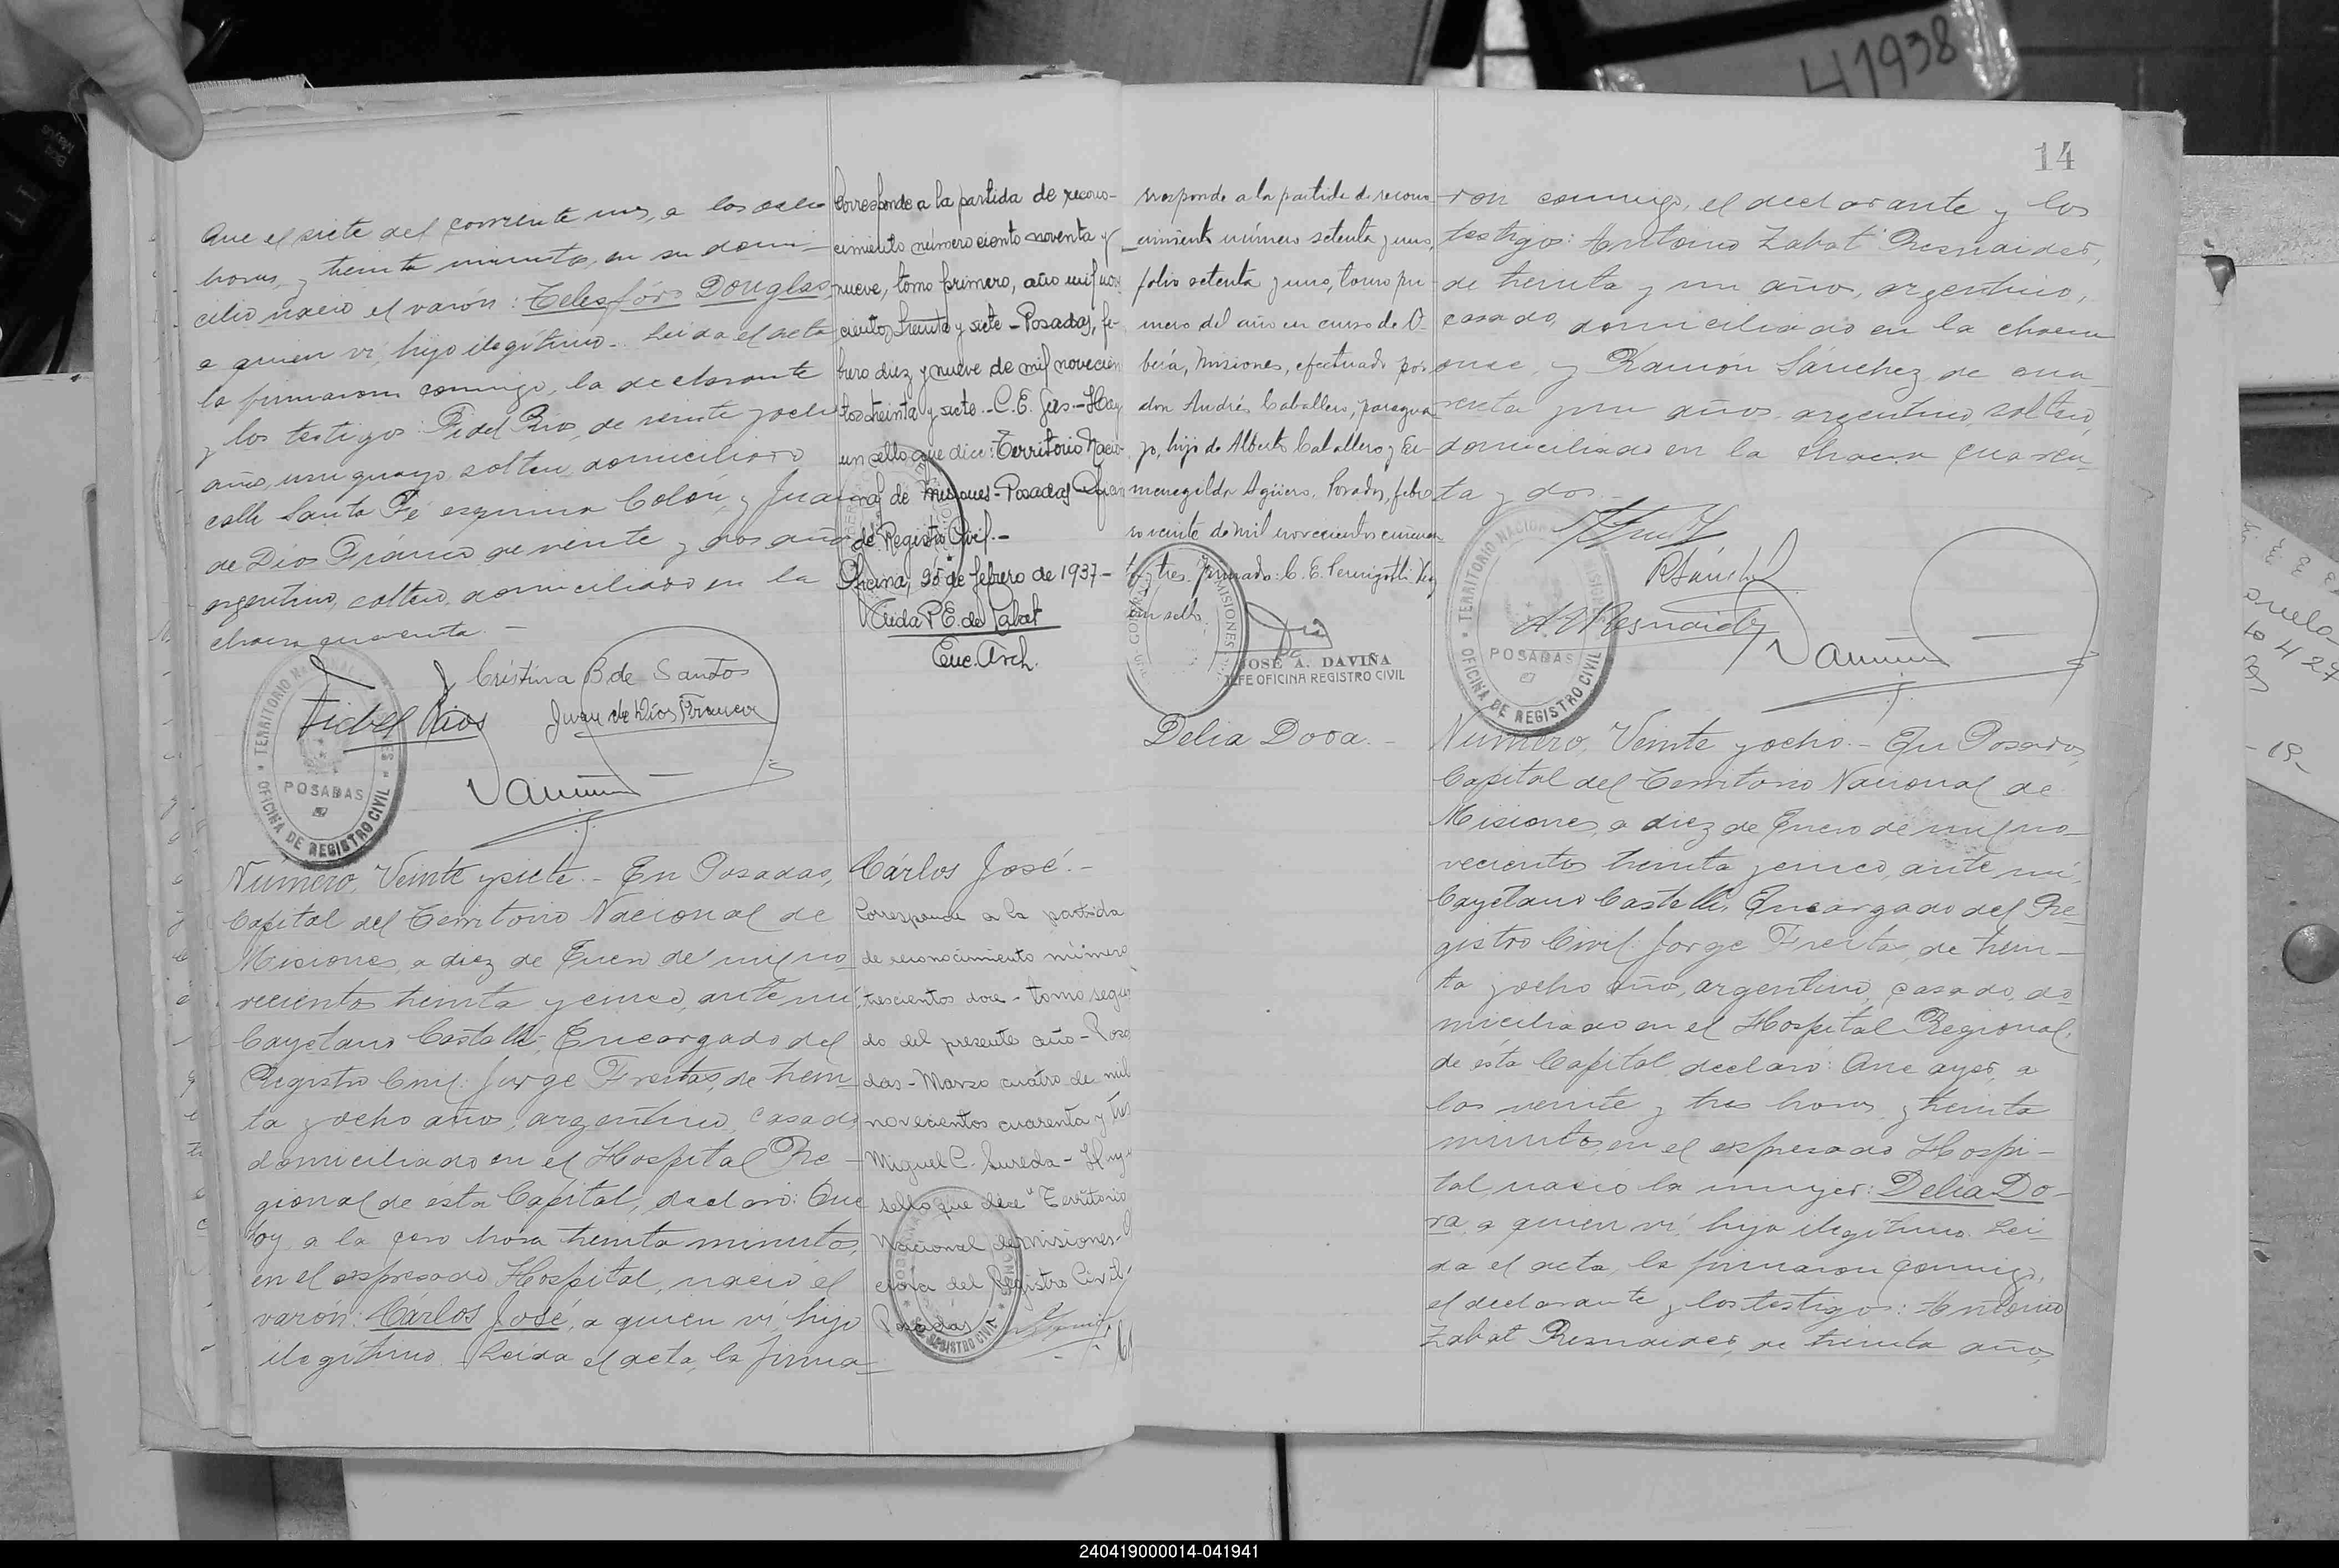 41938
14
Que el siete del corriente mes, a las ocho
horas, y treinta minutos, en su domi-
cilio nació el varón: Telesforo Douglas,
a quien vi, hijo ilegítimo. Leida el acta
la firmaron conmigo, la declarante
y los testigos: Fidel Rios, de veinte y ocho
años, uruguayo, soltero, domiciliado
calle Santa Fé esquina Colón, y Juan
de Dios Franco de veinte y dos años
argentino, soltero, domiciliado en la
chacra cuarenta. -
Cristina B. de Santos
Fidel Rios
Juan de Dios Franco
TERRITORIO NACIONAL
POSADAS
OFICINA DE REGISTRO CIVIL
Corresponde a la partida de recono-
cimiento número ciento noventa y
nueve, tomo primero, año mil nove
cientos treinta y siete - Posadas, fe-
brero diez y nueve de mil novecien
tos treinta y siete. - C. E. - Hay
un sello que dice: Territorio Nacio-
nal de Misiones - Posadas - Oficina
de Registro Civil. -
Oficina, 25 de febrero de 1937 -
P. E. de
Enc. Arch.
Número, Veinte y siete. - En Posadas,
Capital del Territorio Nacional de
Misiones, a diez de Enero de mil no-
vecientos treinta y cinco, ante mi,
Cayetano Castelli, Encargado del
Registro Civil: Jorge Freitas, de trein-
ta y ocho años, argentino, casado,
domiciliado en el Hospital Re-
gional de ésta Capital, declaró: Que
hoy, a la cero hora treinta minutos,
en el expresado Hospital, nació el
varón: Cárlos José, a quien vi, hijo
ilegítimo. Leida el acta, la firma-
Cárlos José. -
Corresponde a la partida
de reconocimiento número
trescientos doce - tomo segun
do del presente año - Posa
das - Marzo cuatro de mil
novecientos cuarenta y tres
Miguel C. Sureda - Hay
sello que dice "Territorio
Nacional de Misiones - O
ficina del Registro Civil,
Posadas
rresponde a la partida de recono
cimiento número setenta y uno,
folio setenta y uno, tomo pri
mero del año en curso de O-
berá, Misiones, efectuado por
don Andrés Caballero, paragua
yo, hijo de Alberto Caballero y Er-
menegilda Agüero. Posadas, febre
ro veinte de mil novecientos cincuen
ta y tres. Firmado: C. E. Hay
un sello.
MISIONES
JOSÉ A. DAVIÑA
JEFE OFICINA REGISTRO CIVIL
Delia Dora. -
ron conmigo, el declarante y los
testigos: Antonio Zabat Resnaider,
de treinta y un años, argentino,
casado, domiciliado en la chacra
once, y Ramón Sánchez, de cua-
renta y un años, argentino, soltero,
domiciliado en la chacra cuaren-
ta y dos. -
RSánchez
TERRITORIO NACIONAL MISIONES
POSADAS
OFICINA DE REGISTRO CIVIL
Número, Veinte y ocho. - En Posadas,
Capital del Territorio Nacional de
Misiones, a diez de Enero de mil no-
vecientos treinta y cinco, ante mi,
Cayetano Castelli, Encargado del Re-
gistro Civil: Jorge Freitas, de trein-
ta y ocho años, argentino, casado, do-
miciliado en el Hospital Regional,
de ésta Capital, declaró: Que ayer, a
las veinte y tres horas, y treinta
minutos, en el expresado Hospi-
tal nació la mujer: Delia Do-
ra, a quien vi, hija ilegítima. Lei-
da el acta, la firmaron conmigo,
el declarante y los testigos: Antonio
Zabat Resnaider, de treinta años,
240419000014-041941